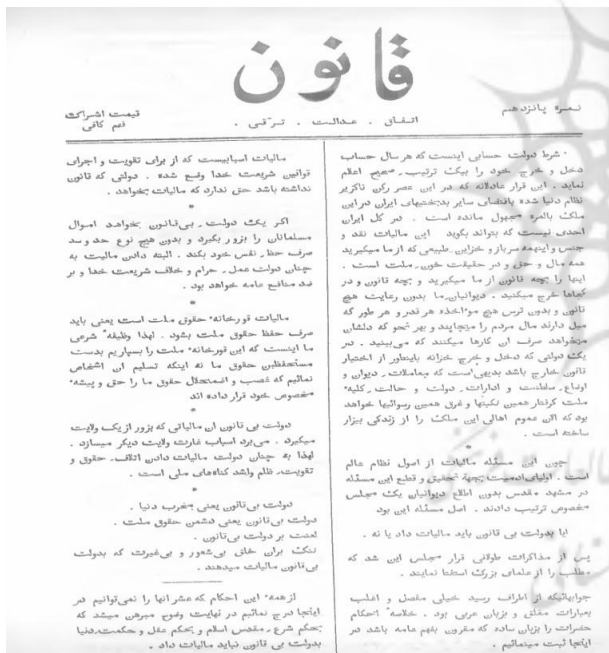 قانون
اتفاق . عدالت . ترقی .
نمره پانزدهم
قیمت اشتراک
فهم کافی
شرط دولت حسابی اینست که هر سال حساب
دخل و خرج خود را بیک ترتیب صحیح اعلام
نماید . این قرار عادلانه که در این عصر رکن ناگزیر
نظام دنیا شده باقتضای سایر بدبختیهای ایران در این
ملک بالمره مجهول مانده است . در کل ایران
احدی نیست که بتواند بگوید این مالیات نقد و
جنس و اینهمه سرباز و خزاین طبیعی که از ما میگیرید
همه مال و حق و در حقیقت خون ملت است .
اینها را بچه قانون از ما میگیرید و بچه قانون و در
کجاها خرج میکنید . دیوانیان ما بدون رعایت هیچ
قانون و بدون ترس هیچ مواخذه هر قدر و هر طور که
میل دارند مال مردم را میچاپند و بهر نحو که دلشان
میخواهد صرف آن کارها میکنند که می‌بینید . در
یک دولتی که دخل و خرج خزانه باینطور از اختیار
قانون خارج باشد بدیهی است که معاملات دیوان و
اوضاع سلطنت و ادارات دولت و حالت کلیه
ملت گرفتار همین نکبتها و غرق همین رسوائیها خواهد
بود که الان عموم اهالی این ملک را از زندگی بیزار
ساخته است .
چون این مسئله مالیات از اصول نظام عالم
است . اولیای آدمیت بجهة تحقیق و قطع این مسئله
در مشهد مقدس بدون اطلاع دیوانیان یک مجلس
مخصوص ترتیب دادند . اصل مسئله این بود
ایا بدولت بی قانون باید مالیات داد یا نه .
پس از مذاکرات طولانی قرار مجلس این شد که
مطلب را از علمای بزرگ استفتا نمایند .
جوابهائیکه از اطراف رسید خیلی مفصل و اغلب
بعبارات مغلق و بزبان عربی بود . خلاصه احکام
حضرات را بزبان ساده که مقرون بفهم عامه باشد در
اینجا ثبت مینمائیم .
مالیات اسبابیست که از برای تقویت و اجرای
قوانین شریعت خدا وضع شده . دولتی که قانون
نداشته باشد حق ندارد که مالیات بخواهد .
*
اگر یک دولت بی‌قانون بخواهد اموال
مسلمانان را بزور بگیرد و بدون هیچ نوع حد و سد
صرف حظ نفس خود بکند . البته دادن مالیات به
چنان دولت عمل حرام و خلاف شریعت خدا و بر
ضد منافع عامه خواهد بود .
*
مالیات قورخانه حقوق ملت است یعنی باید
صرف حفظ حقوق ملت بشود . لهذا وظیفه شرعی
ما اینست که این قورخانه ملت را بسپاریم بدست
مستحفظین حقوق ما نه اینکه تسلیم ان اشخاص
نمائیم که غصب و اضمحلال حقوق ما را حق و پیشه
مخصوص خود قرار داده اند
*
دولت بی قانون ان مالیاتی که بزور از یک ولایت
میگیرد . می‌برد اسباب غارت ولایت دیگر میسازد .
لهذا به چنان دولت مالیات دادن اتلاف حقوق و
تقویت ظلم واشد گناههای ملی است .
*
دولت بی قانون یعنی مخرب دنیا .
دولت بی قانون یعنی دشمن حقوق ملت .
لعنت بر دولت بی‌قانون .
ننگ بران خلق بی‌شعور و بی‌غیرت که بدولت
بی‌قانون مالیات میدهند .
از همه این احکام که عشر انها را نمی‌توانیم در
اینجا درج نمائیم در نهایت وضوح مبرهن میشد که
بحکم شرع مقدس اسلام و بحکم عقل و حکمت دنیا
بدولت بی قانون نباید مالیات داد .